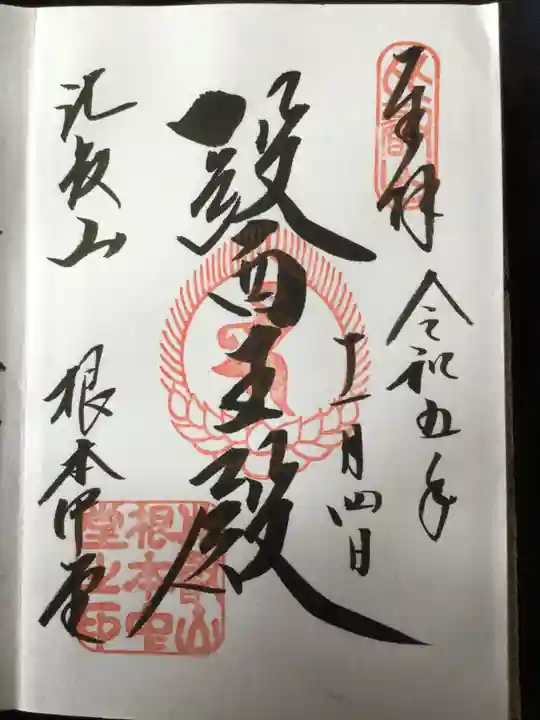 奉拝 令和五年
十一月四日
醫王殿
比叡山 根本中堂
比叡山
根本中
堂之印